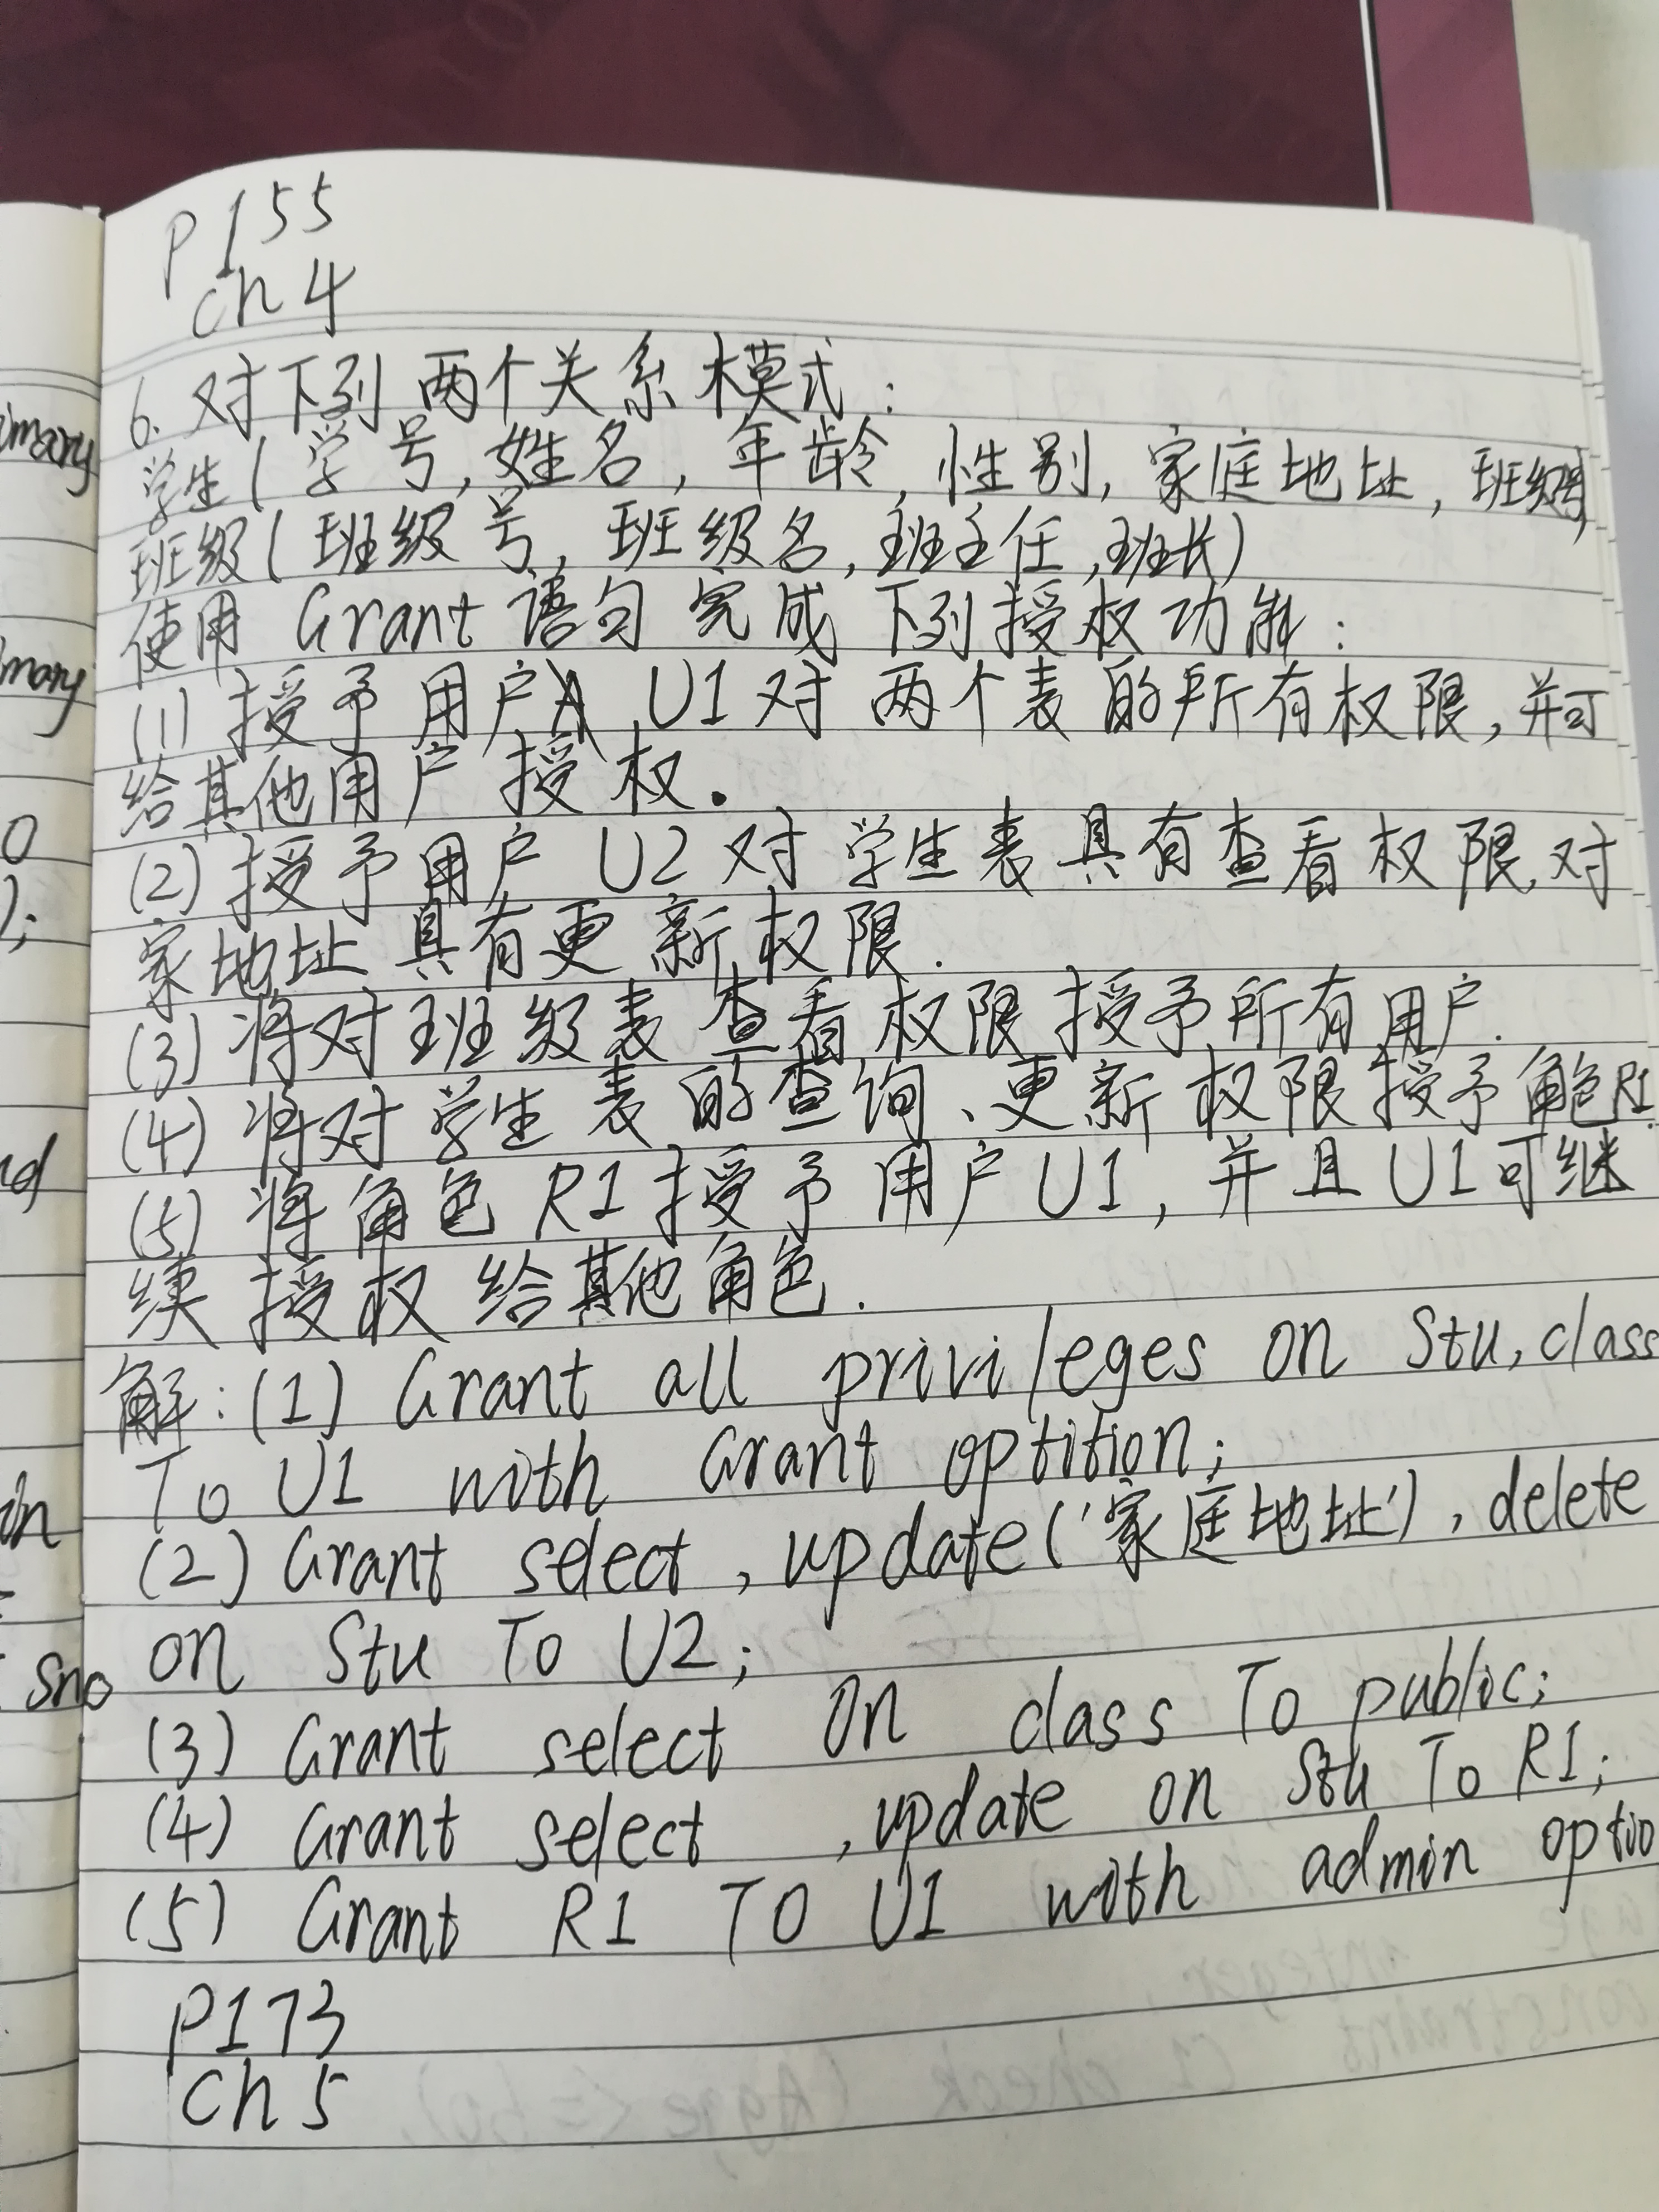 P155
ch4
6. 对下列两个关系模式:
学生(学号,姓名,年龄,性别,家庭地址,班级号)
班级(班级号,班级名,班主任,班长)
使用 Grant 语句完成下列授权功能:
(1) 授予用户 U1 对两个表的所有权限,并可
给其他用户授权.
(2) 授予用户 U2 对学生表具有查看权限,对
家地址具有更新权限.
(3) 将对班级表查看权限授予所有用户.
(4) 将对学生表的查询、更新权限授予角色R1.
(5) 将角色R1授予用户U1,并且U1可继
续授权给其他角色.
解:(1) Grant all privileges on Stu,class
To U1 with Grant optition;
(2) Grant select, update('家庭地址'), delete
on Stu To U2;
(3) Grant select on class To public;
(4) Grant select ,update on Stu To R1;
(5) Grant R1 TO U1 with admin optio
P173
Ch5
imary
mary
0
);
nd
in
Sno